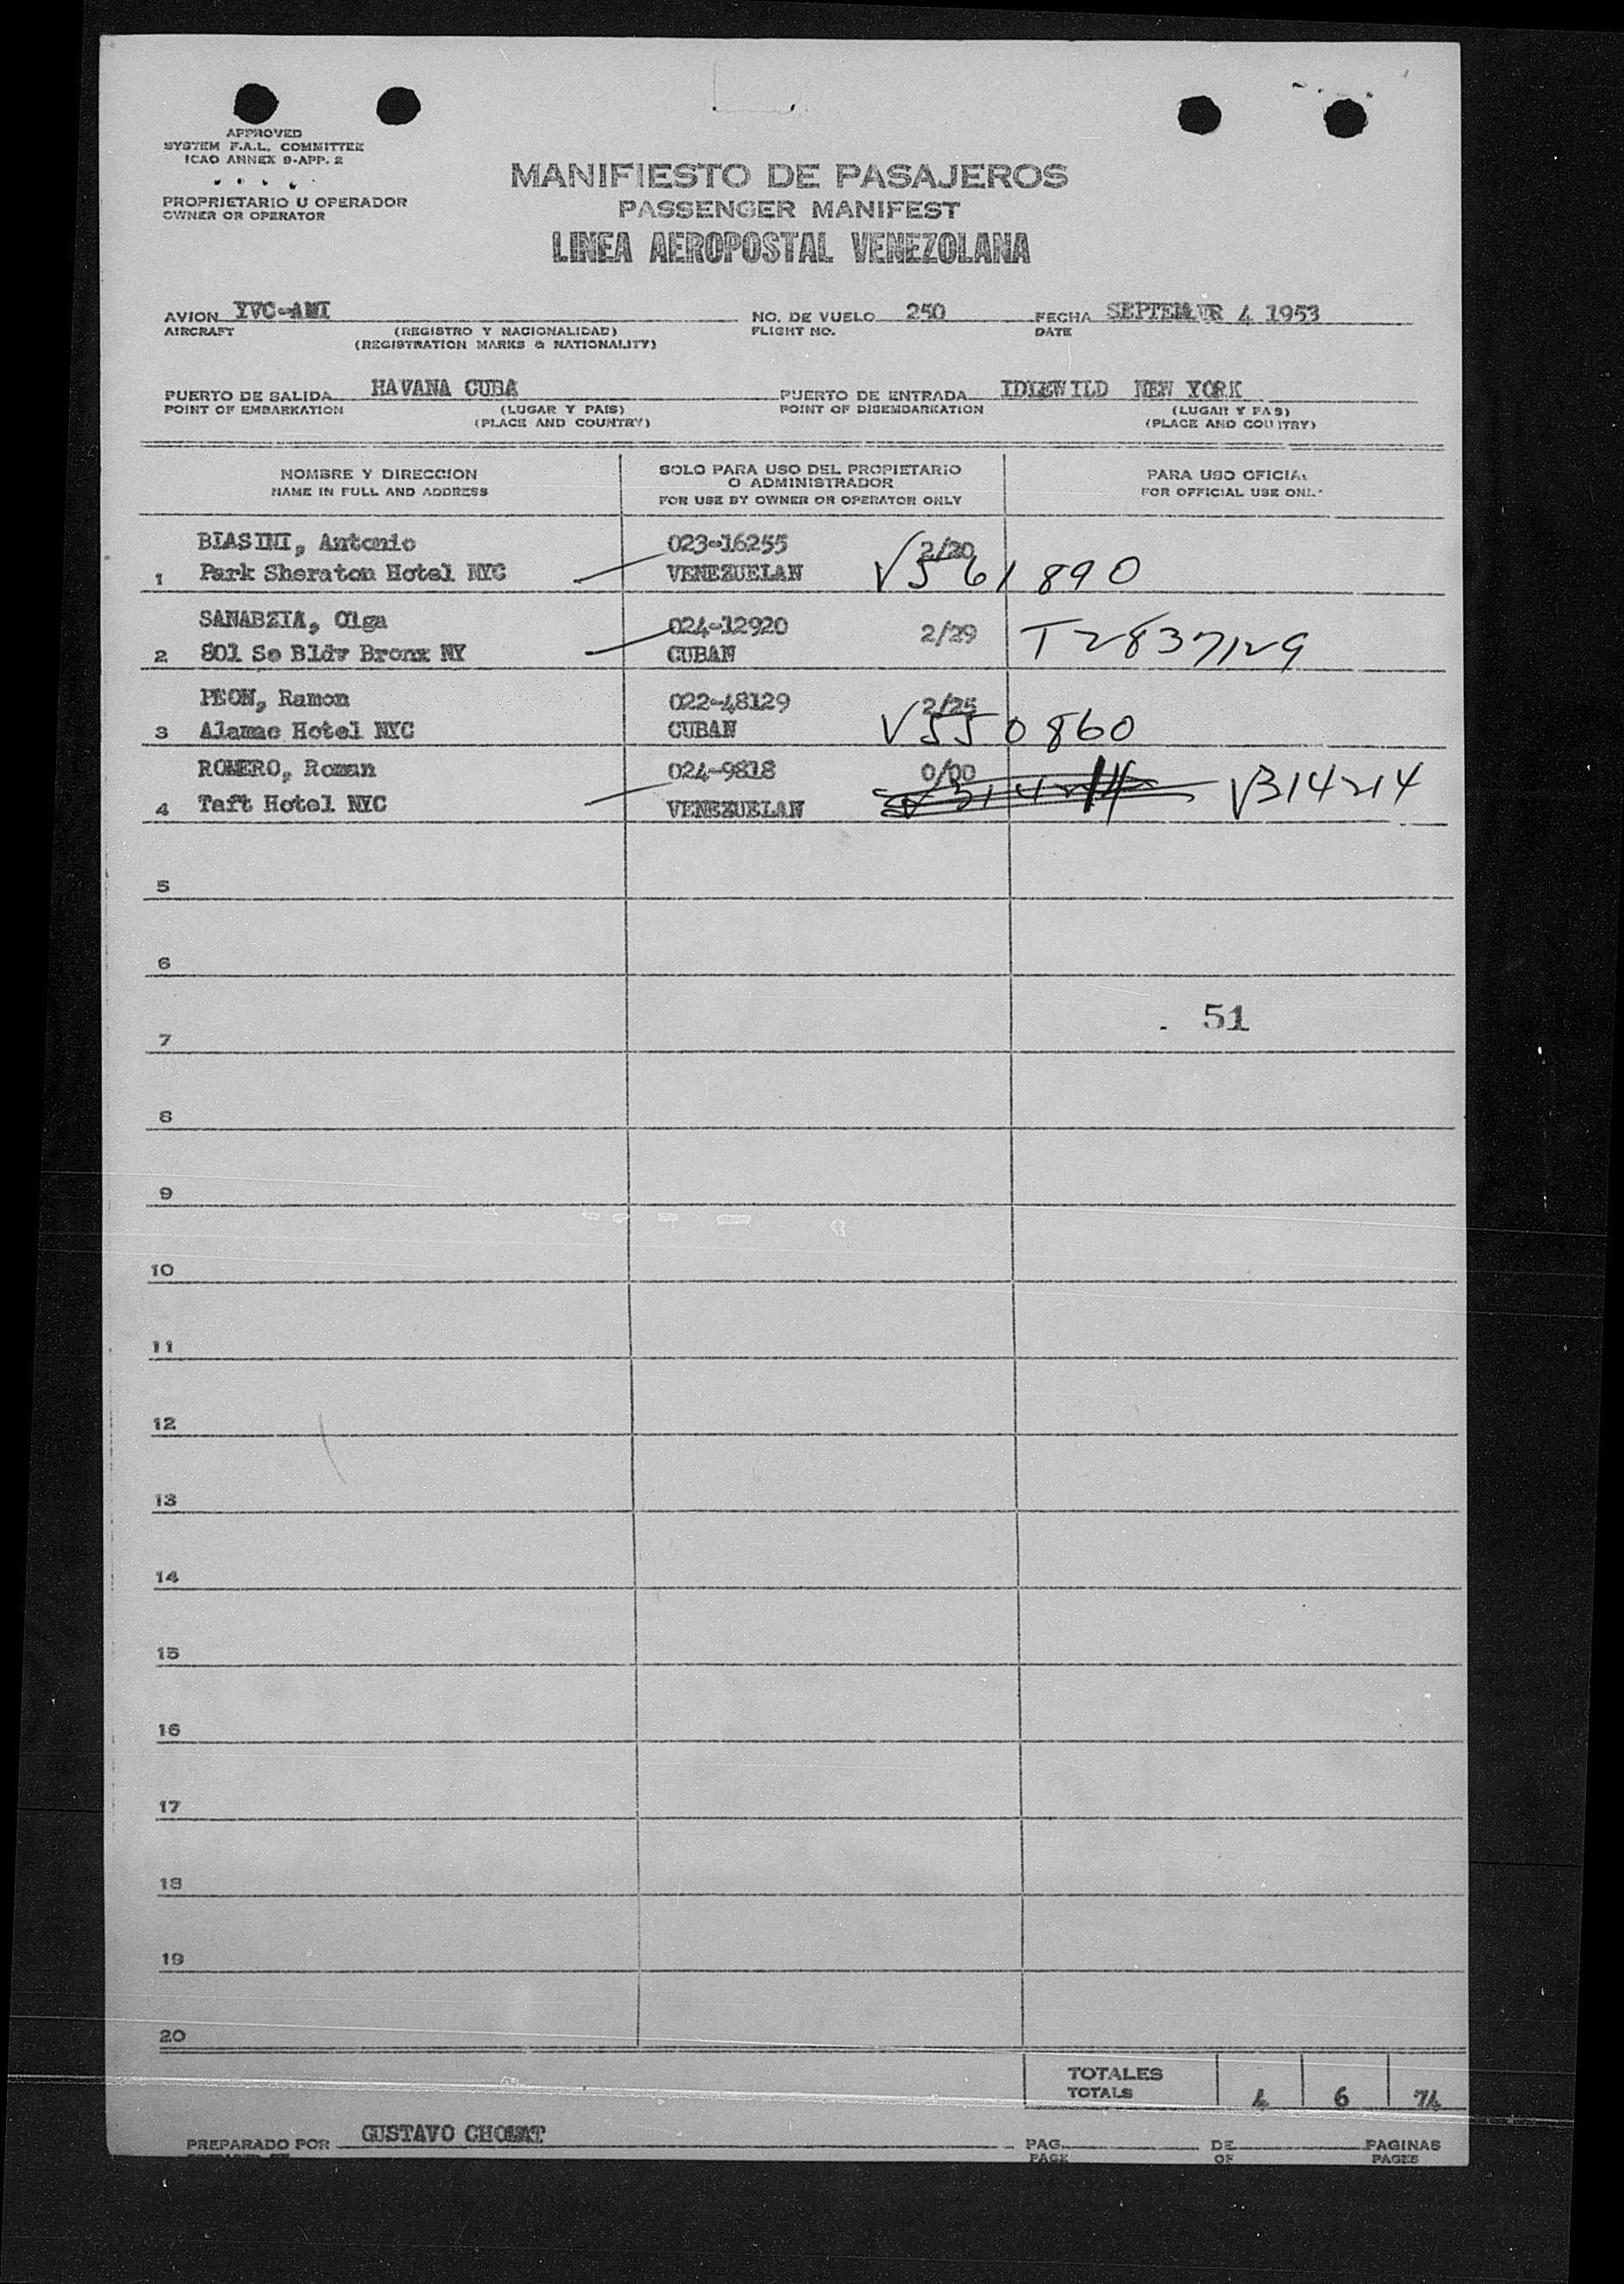 APPROVED
SYSTEM F.A.L. COMMITTEE
ICAO ANNEX 9-APP. 2
PROPRIETARIO U OPERADOR
OWNER OR OPERATOR
MANIFIESTO DE PASAJEROS
PASSENGER MANIFEST
LINEA AEROPOSTAL VENEZOLANA
AVION YVC-AMI NO. DE VUELO 250 FECHA 4 1953
AIRCRAFT (REGISTRO Y NACIONALIDAD) FLIGHT NO. DATE
(REGISTRATION MARKS & NATIONALITY)
PUERTO DE SALIDA HAVANA CUBA PUERTO DE ENTRADA IDLEWILD NEW YORK
POINT OF EMBARKATION (LUGAR Y PAIS) POINT OF DISEMBARKATION (LUGAR Y PAS)
(PLACE AND COUNTRY) (PLACE AND COUNTRY)
NOMBRE Y DIRECCION SOLO PARA USO DEL PROPIETARIO PARA USO OFICIAL
O ADMINISTRADOR
NAME IN FULL AND ADDRESS FOR USE BY OWNER OR OPERATOR ONLY FOR OFFICIAL USE ONL
BIASINI, Antonio 023-16255 2/20
1 Park Sheraton Hotel NYC VENEZUELAN V561890
SANABZIA, Olga 024-12920 2/29 T2837129
2 801 So Bldv Bronx NY CUBAN
PEON, Ramon 022-48129 2/25
3 Alamac Hotel NYC CUBAN V550860
ROMERO, Roman 024-9818 0/00
4 Taft Hotel NYC VENEZUELAN V314214
5
6
7 51
8
9
10
11
12
13
14
15
16
17
18
19
20
TOTALES
TOTALS 4 6 74
PREPARADO POR GUSTAVO PAG. DE PAGINAS
PAGE OF PAGES